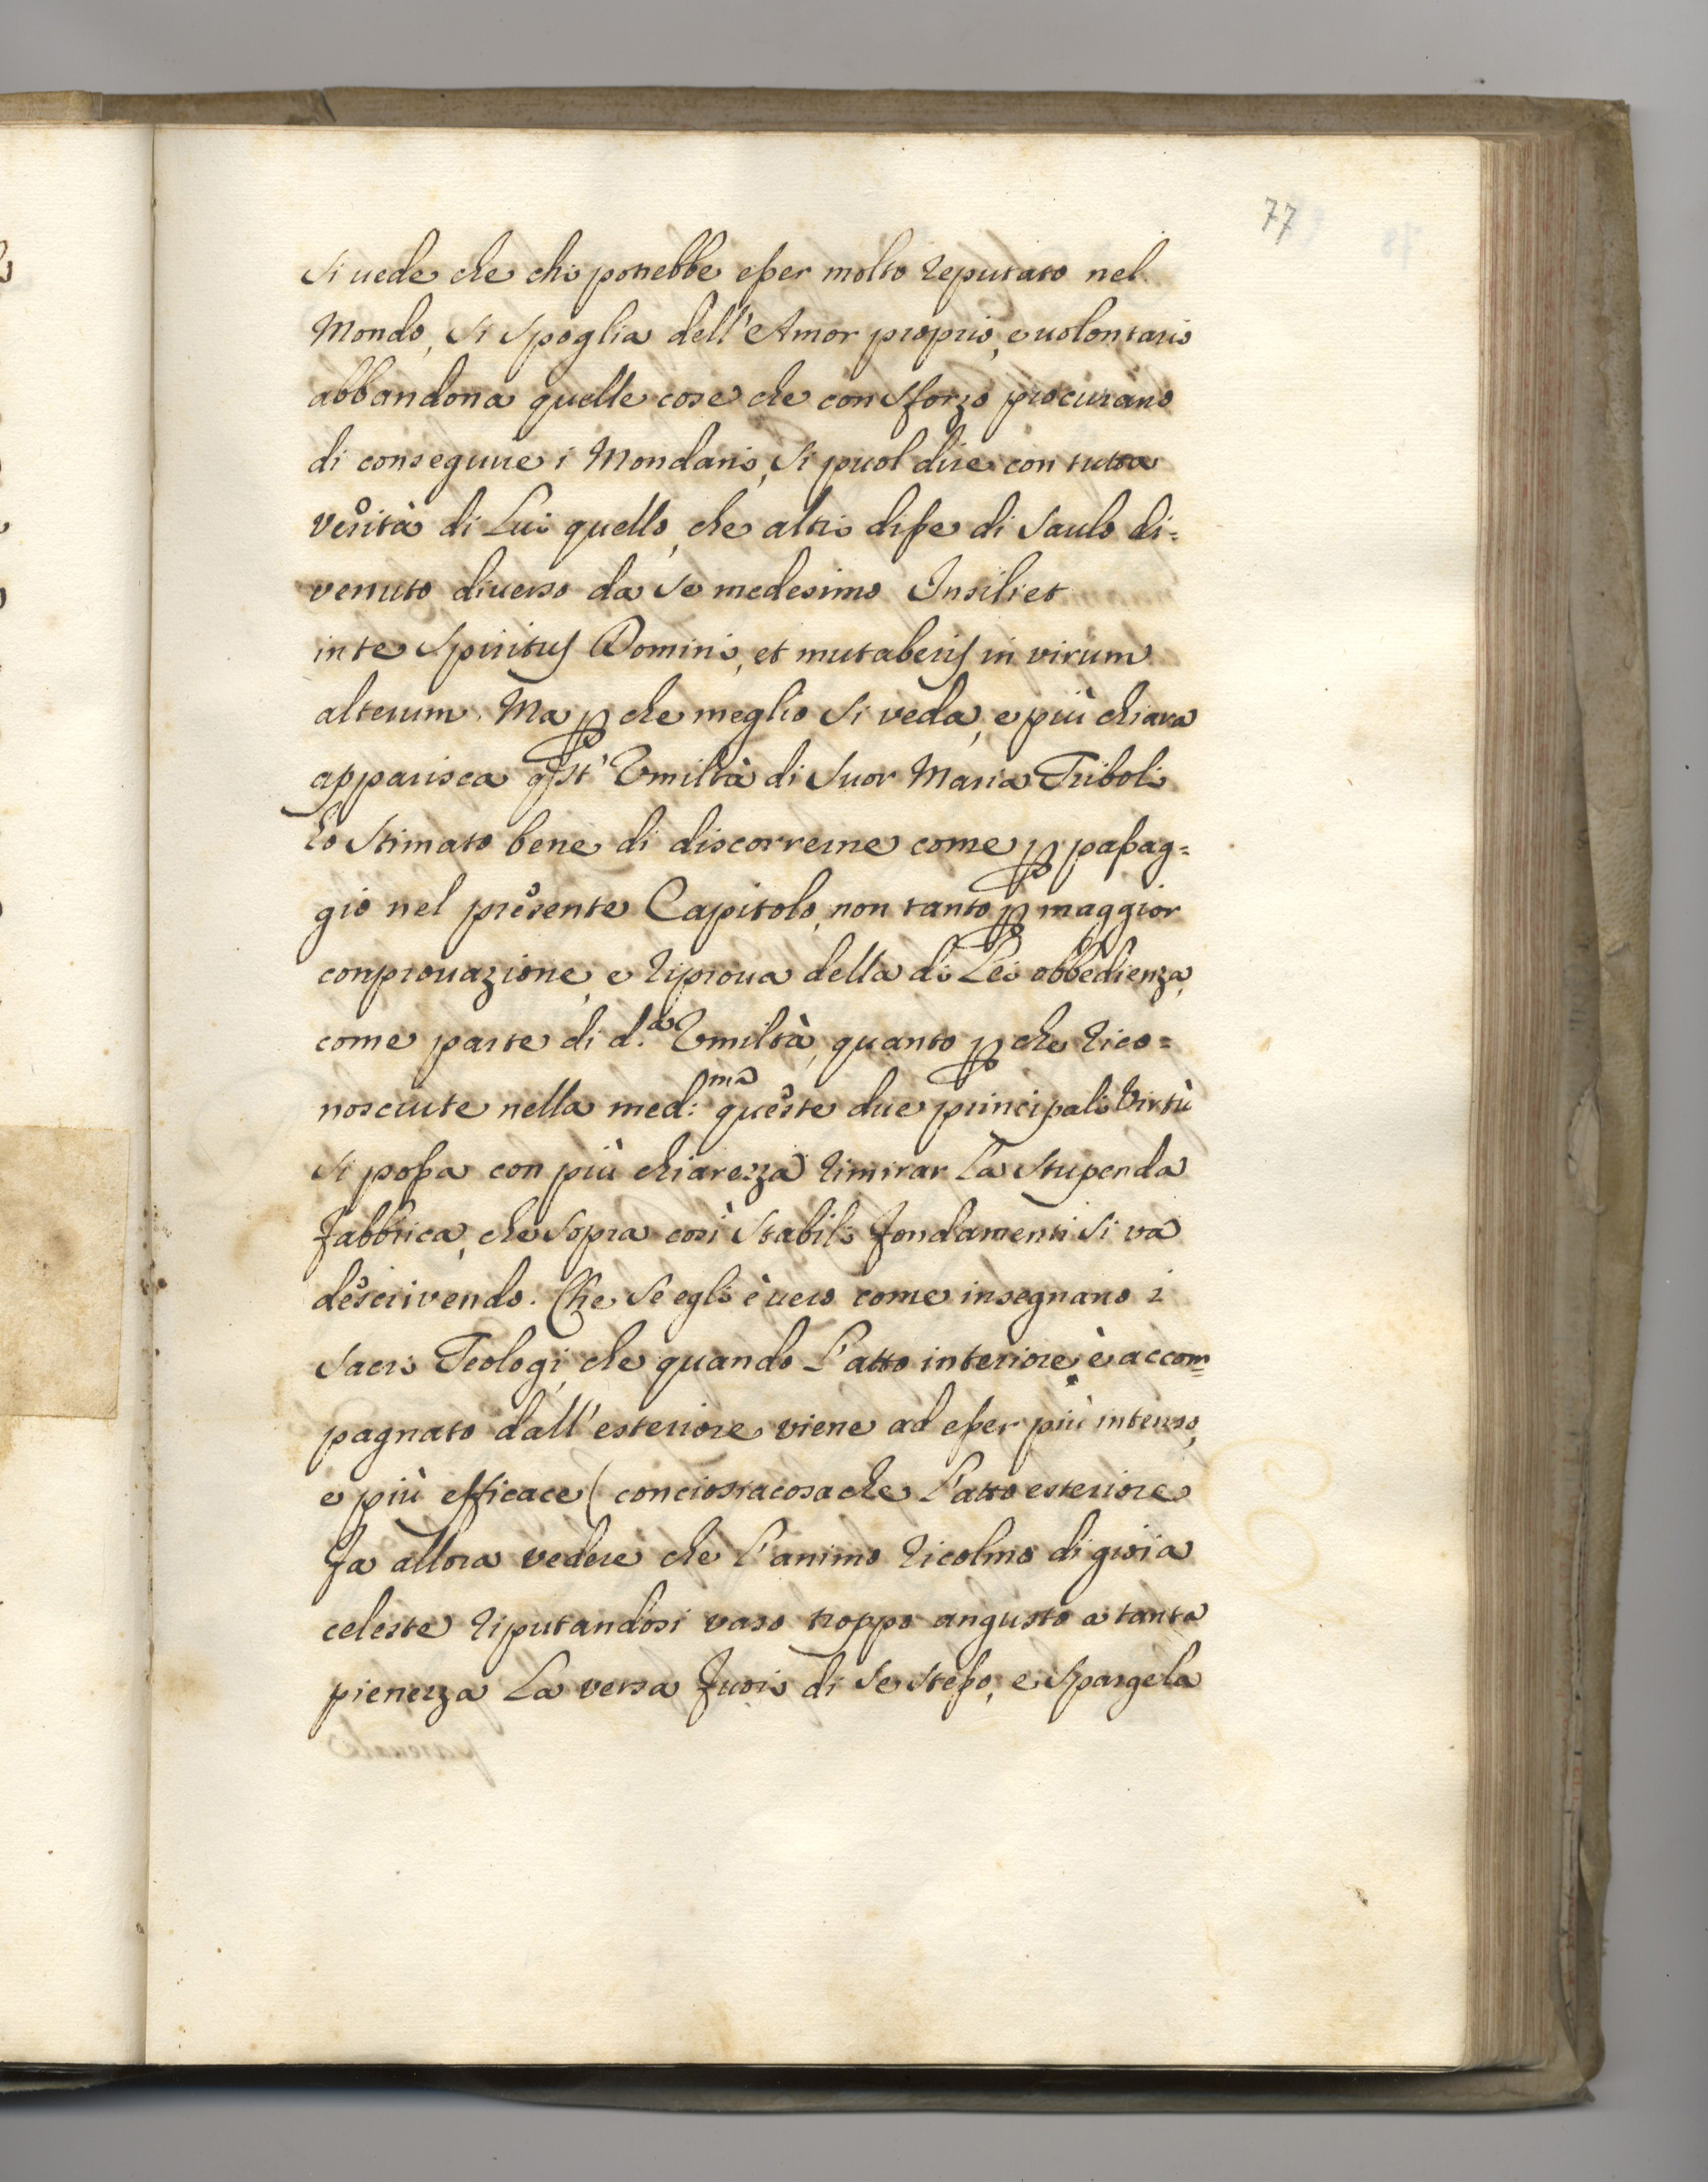 77
si uede che chi potrebbe esser molto reputato nel
Mondo, si spoglia dell'Amor proprio, e uolontario
abbandona quelle cose che con sforzo procurano
di conseguire i Mondani, si puol dire con tutta
verità di Lui quello, che altri disse di Saulo di=
venuto diuerso da se medesimo Insiliet
in te Spiritus Domini, et mutaberis in virum
alterum. Ma p che meglio si veda, e più chiara
apparisca qst' Vmiltà di Suor Maria Triboli
ho stimato bene di discorrerne come p passag=
gio nel presente Capitolo, non tanto p maggior
conprouazione, e riproua della di Lei obbedienza,
come parte di d.a Vmiltà, quanto p che rico=
nosciute nella med:ma queste due principali Virtù
si possa con più chiarezza rimirar la stupenda
fabbrica, che sopra così stabili fondamenti si va
descrivendo. Che se egli è uero come insegnano i
Sacri Teologi, che quando l'atto interiore è accom=
pagnato dall'esteriore viene ad esser più intenso,
e più efficace (conciosiacosache l'atto esteriore
fa allora vedere che l'animo ricolmo di gioia
celeste riputandosi vaso troppo angusto a tanta
pienezza la versa fuori di se stesso, e spargela